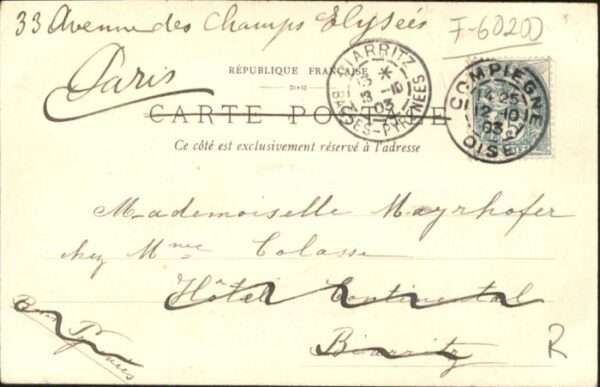 33 Avenue des Champs Elysées
F-60200
Paris
RÉPUBLIQUE FRANÇAISE
BIARRITZ
13 -10
03
BASSES-PYRÉNÉES
COMPIEGNE
14 25
12 -10
03
OISE
CARTE POSTALE
Ce côté est exclusivement réservé à l'adresse
Mademoiselle Mayrhofer
chez Mme Colasse
Hôtel Continental
Biarritz
Bses Pyrénées
R